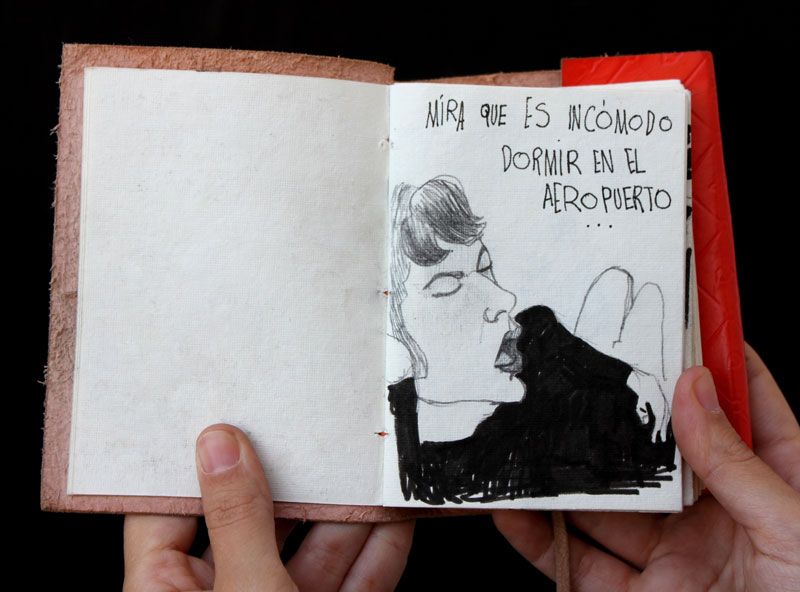 MÍRA QUE ES INCÓMODO
DORMIR EN EL
AEROPUERTO
...